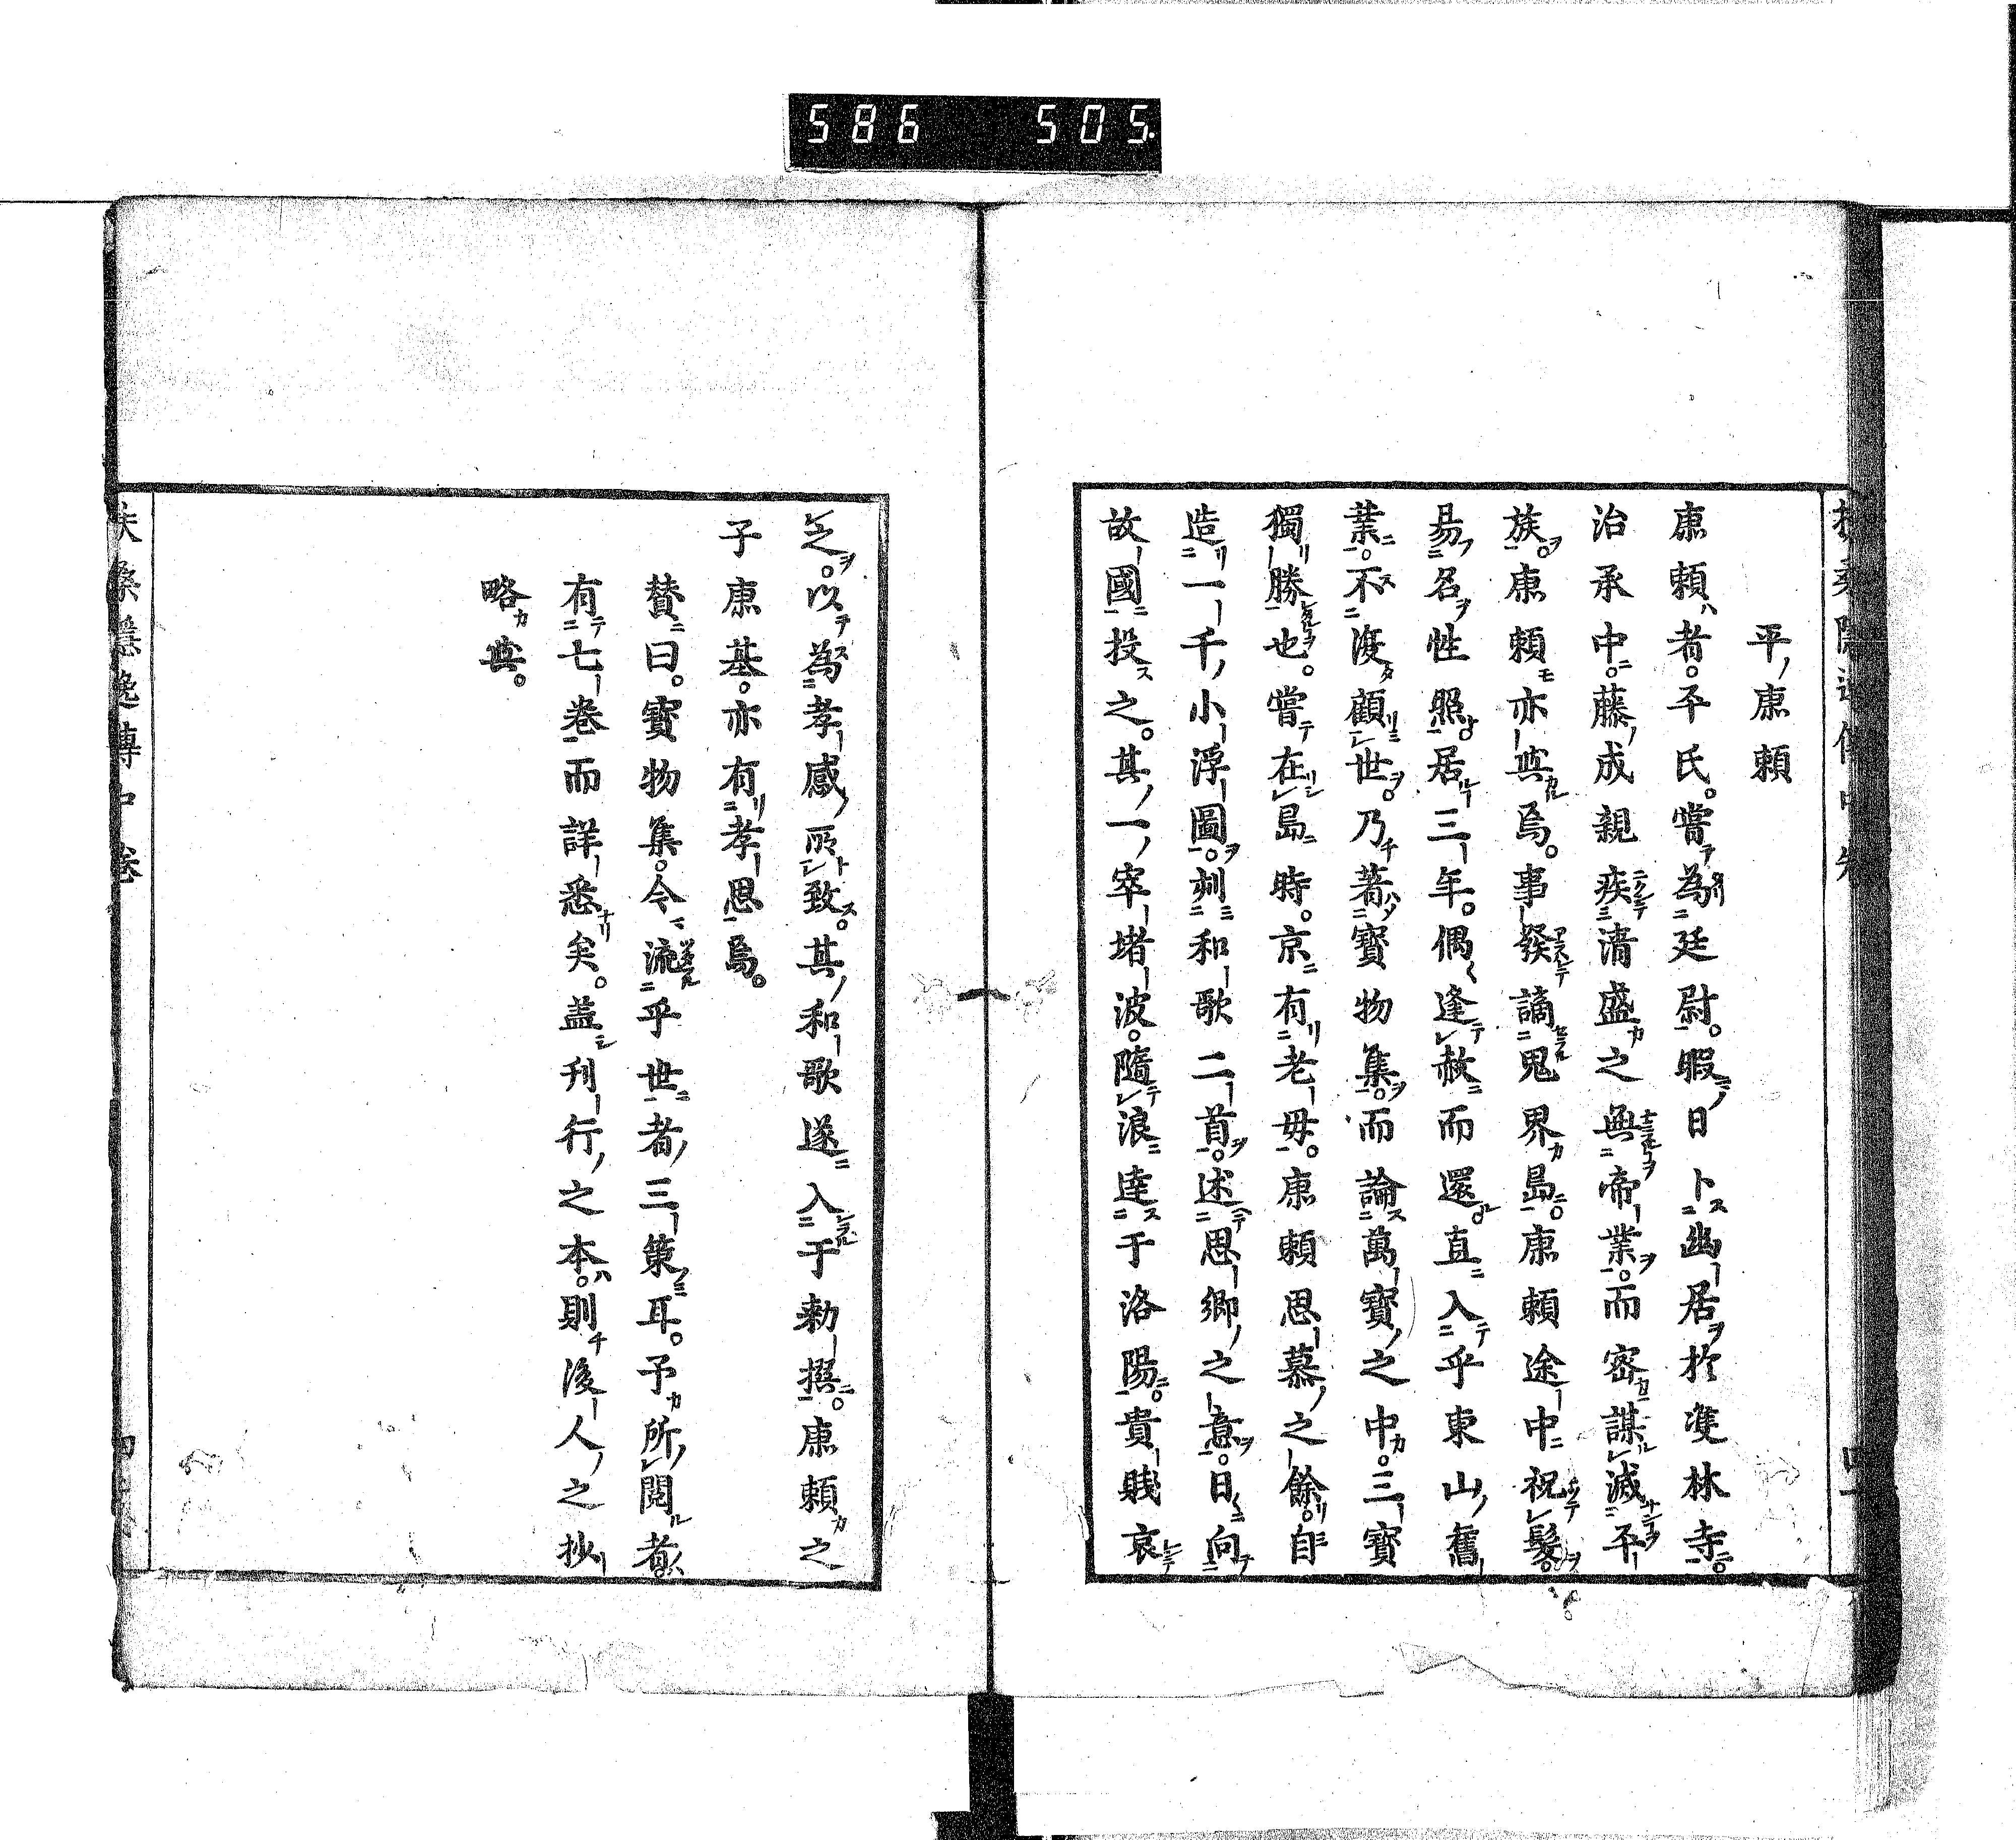 586 505.
平康頼
康頼者。平氏。嘗為廷尉。暇日卜幽居於雙林寺。
治承中。藤成親疾清盛之無帝業。而密謀滅平
族。康頼亦與焉。事發謫鬼界島。康頼途中祝髮。
易名性照。居三年。偶逢赦而還。直入乎東山舊
業。不復顧世。乃著寶物集。而論萬寶之中。三寶
獨勝也。嘗在島時。京有老母。康頼思慕之餘。自
造一千小浮圖。刻和歌二首。述思鄉之意。日向
故國投之。其一窣堵波。隨浪達于洛陽。貴賤哀
之。以為孝感所致。其和歌遂入于勅撰。康頼之
子康基。亦有孝思焉。
賛曰。寶物集。今流乎世者三策耳。予所閲者。
有七卷而詳悉矣。蓋刊行之本。則後人之抄
略與。
扶桑隱逸傳中卷